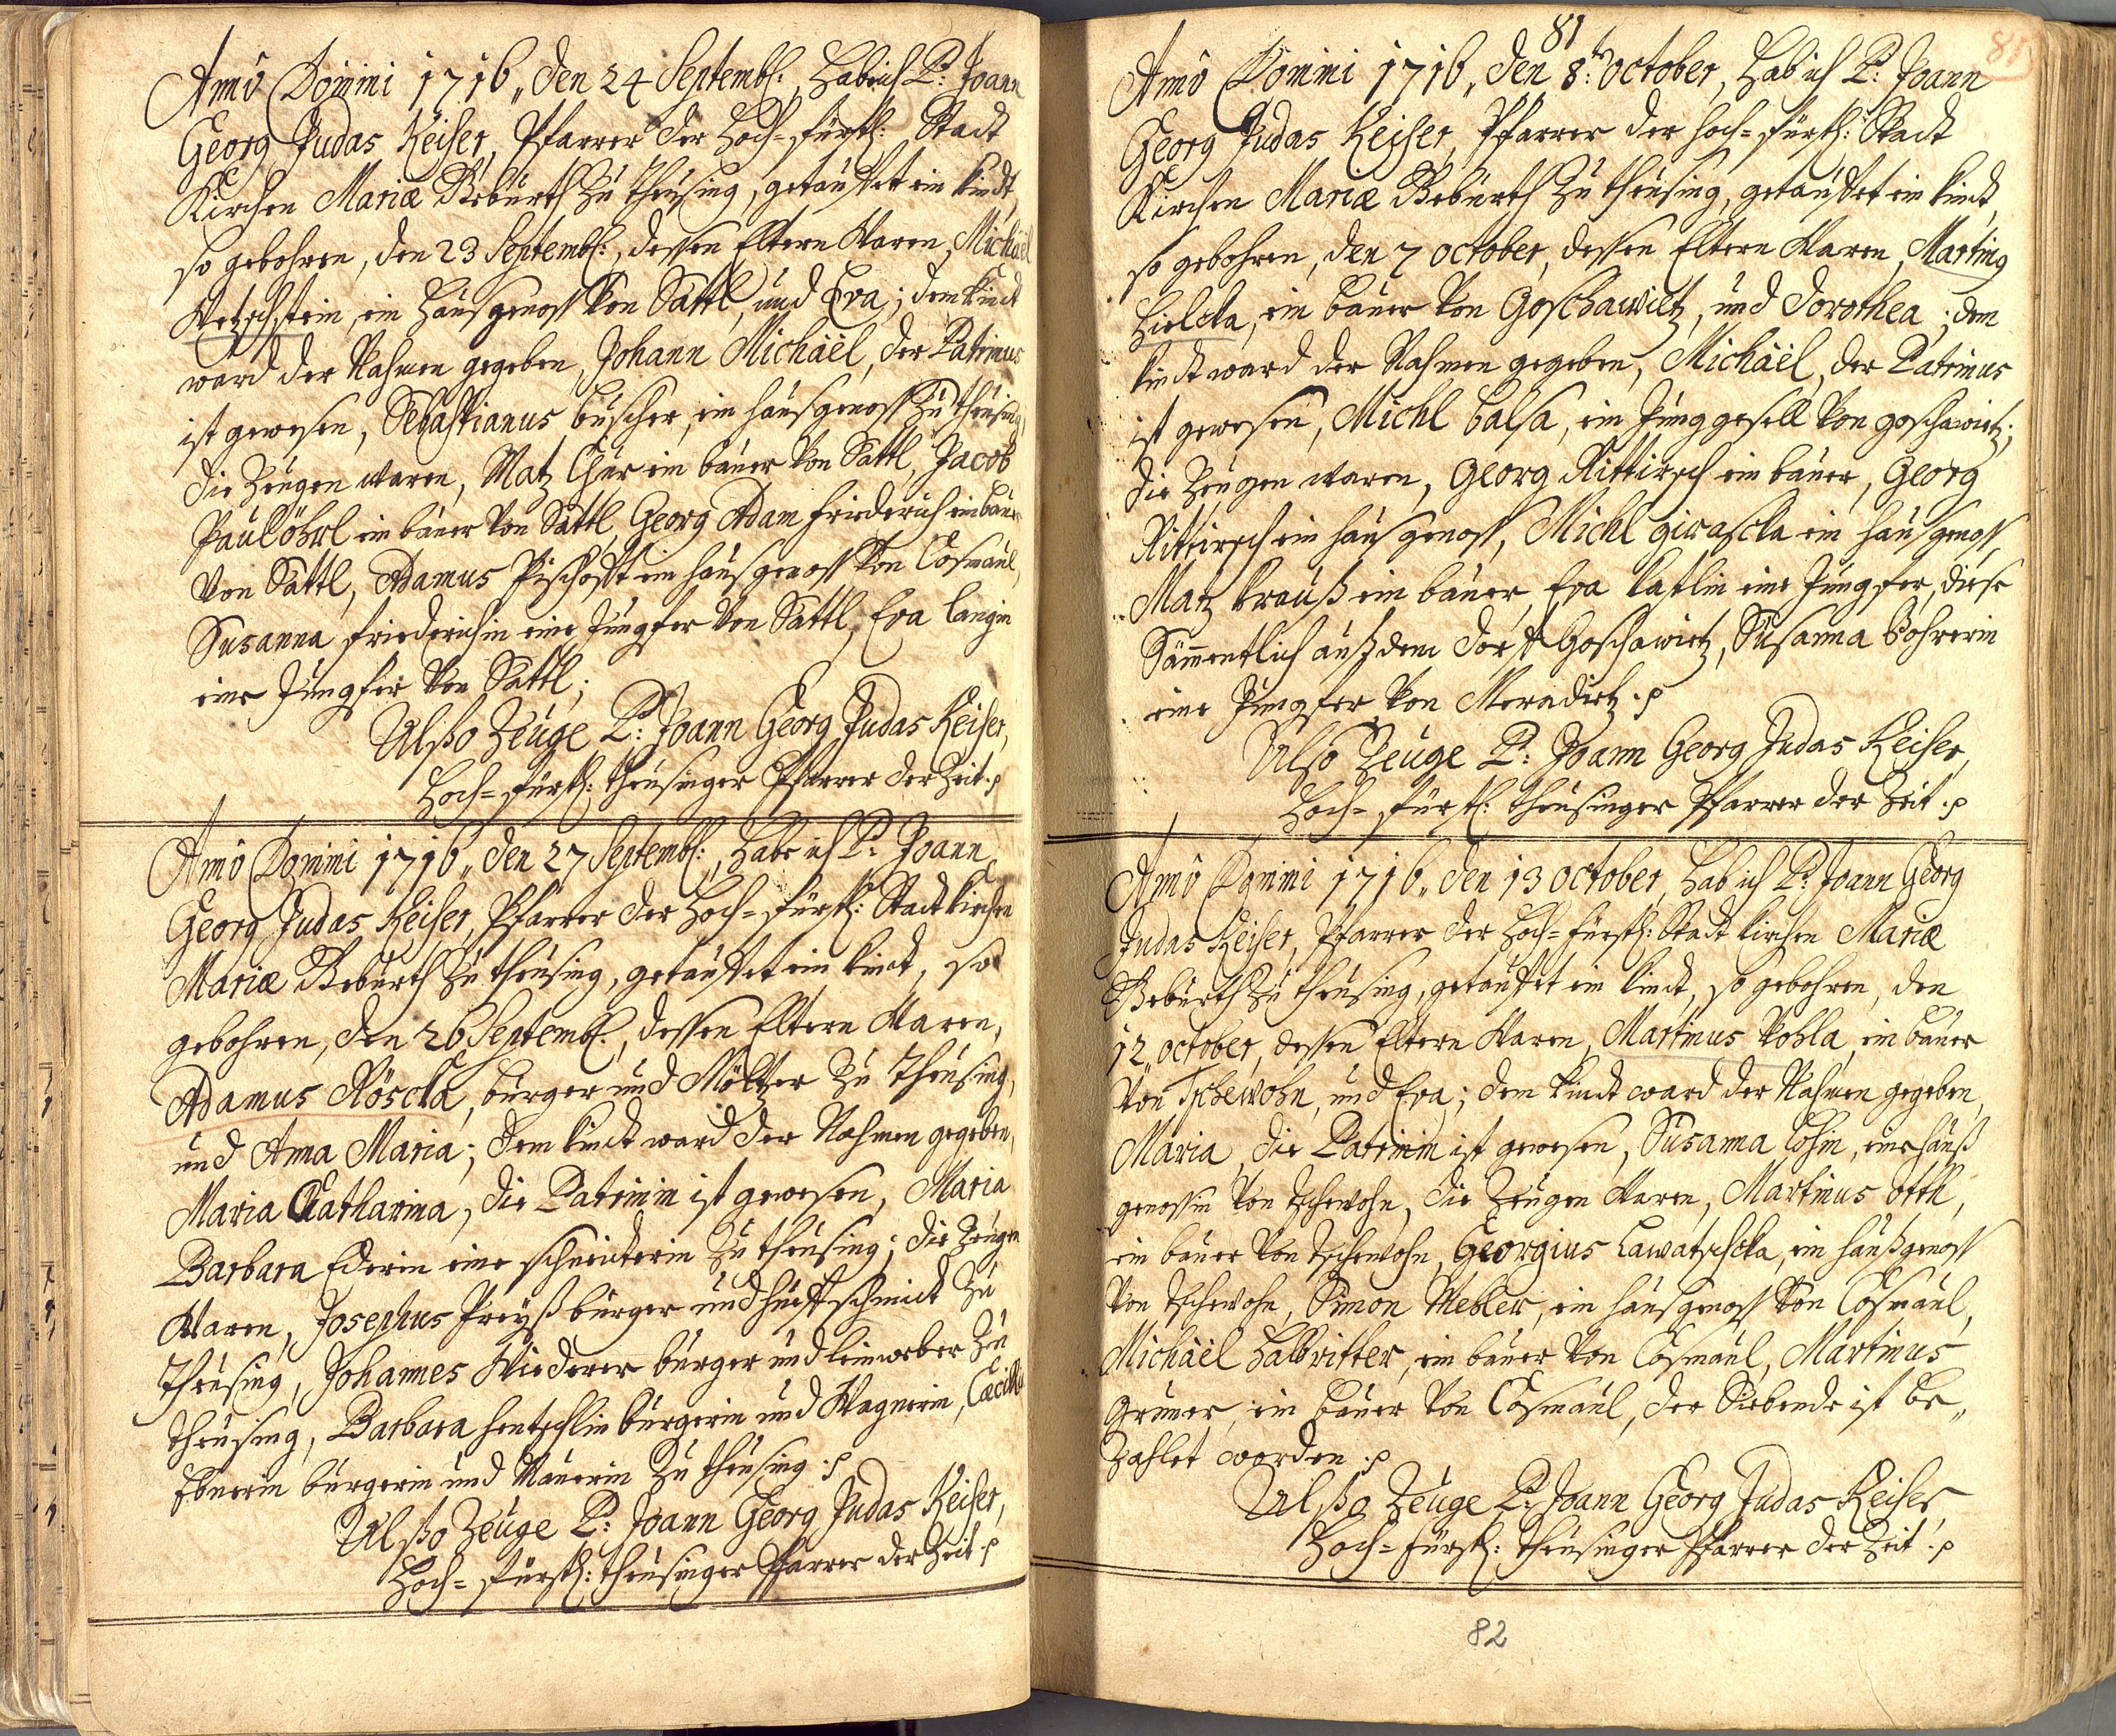 Anno Domini 1716, den 24 Septemb: hab ich P: Joann
Georg Judas Keiser, Pfarrer der Hoch-fürstl: Stadt
Kirchen Mariæ Geburth zu theusing, getauffet ein kindt,
so gebohren, den 23 Septemb:, dessen Eltern waren, Michaël
Wetzstein, ein haußgenoss von Sattl, und Eva; dem kindt
ward der Nahmen gegeben, Johann Michaël, der Patrinus
ist gewesen, Sebastianus buscher, ein haußgenoss zu theusing,
die Zeugen waren, Matz ein bauer von Sattl, Jacob
Paul öhrl ein bauer von Sattl, Georg Adam friederich ein bauer
von Sattl, Adamus Pischofft ein haußgenoss von Cosmaul,
Susanna friederichin eine Jungfer von Sattl, Eva langin
eine Jungfer von Sattl;
Alßo Zeuge P: Joann Georg Judas Keiser,
Hoch-fürstl: theusinger Pfarrer der Zeit.
Anno Domini 1716, den 27 Septemb:, habe ich P: Joann
Georg Judas Keiser, Pfarrer der Hoch-fürstl: Stadt kirchen
Mariæ Geburth zu theusing, getauffet ein kindt, so
gebohren, den 26 Septemb:, dessen Eltern waren,
Adamus Röscka, burger und Möltzer zu Theusing,
und Anna Maria; dem kindt ward der Nahmen gegeben,
Maria Catharina, die Patrinin ist gewesen, Maria
Barbara Ederin eine schneiderin zu theusing; die Zeugen
waren, Josephus Preyß burger und huffschmidt zu
Theusing, Johannes Wiederer burger und leinweber zu
theusing, Barbara hentschlin burgerin und Wagnerin, Cæcilia
Ebnerin burgerin und Maurerin zu theusing.
Alßo Zeuge P: Joann Georg Judas Keiser,
Hoch-fürstl: theusinger Pfarrer der Zeit.
81
81
Anno Domini 1716, den 8:t october, hab ich P: Joann
Georg Judas Keiser, Pfarrer der hoch-fürstl: Stadt
Kirchen Mariæ Geburth zu theusing, getauffet ein kindt,
so gebohren, den 7 october, dessen Eltern waren, Marting
hielcka, ein bauer von Goschawitz, und Dorothea; dem
kindt ward der Nahmen gegeben, Michaël, der Patrinus
ist gewesen, Michl balsa, ein Junggesell von goschawitz;
die Zeugen waren, Georg Rittirsch ein bauer, Georg
Rittirsch ein haußgenoss, Michl girascka ein haußgenoss,
Matz krauß ein bauer, Eva laßlin eine Jungfer, diese
Sämmentlich auß dem dorff Goschawitz, Susanna Bohrerin
eine Jungfer von Meraditz.
Also Zeuge P: Joann Georg Judas Keiser,
Hoch-fürstl: theusinger Pfarrer der Zeit.
Anno Domini 1716, den 13 october, hab ich P: Joann Georg
Judas Keiser, Pfarrer der Hoch-fürstl: Stadt kirchen Mariæ
Geburth zu theusing, getauffet ein kindt, so gebohren, den
12 october, dessen Eltern waren, Martinus Pohla, ein bauer
von Tschewohn, und Eva; dem kindt ward der Nahmen gegeben,
Maria, die Patrinin ist gewesen, Susanna Cohin, eine hauß
genossin von tschewohn, die Zeugen waren, Martinus otth,
ein bauer von tschewohn, Georgius Lawatschcka, ein haußgenoss
von tschewohn, Simon Mehler, ein haußgenoss von Cosmaul,
Michaël Halbritter, ein bauer von Cosmaul, Martinus
Gruner, ein bauer von Cosmaul, der Siebende ist be„
zahlet worden.
Alßo Zeuge P: Joann Georg Judas Keiser,
Hoch-fürstl: theusinger Pfarrer der Zeit.
82